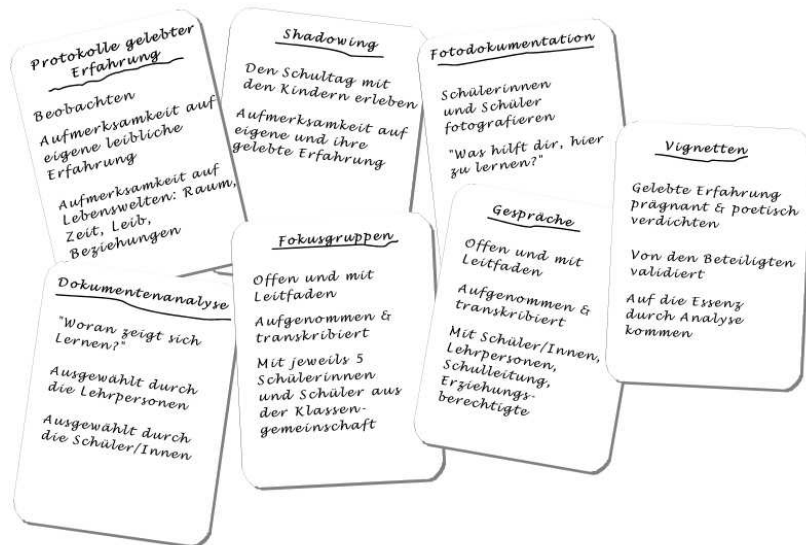 Protokolle gelebter
Erfahrung
Beobachten
Aufmerksamkeit auf
eigene leibliche
Erfahrung
Aufmerksamkeit auf
Lebenswelten: Raum,
Zeit, Leib,
Beziehungen
Shadowing
Den Schultag mit
den Kindern erleben
Aufmerksamkeit auf
eigene und ihre
gelebte Erfahrung
Fotodokumentation
Schülerinnen
und Schüler
fotografieren
"Was hilft dir, hier
zu lernen?"
Vignetten
Gelebte Erfahrung
prägnant & poetisch
verdichten
Von den Beteiligten
validiert
Auf die Essenz
durch Analyse
kommen
Dokumentenanalyse
"Woran zeigt sich
Lernen?"
Ausgewählt durch
die Lehrpersonen
Ausgewählt durch
die Schüler/Innen
Fokusgruppen
Offen und mit
Leitfaden
Aufgenommen &
transkribiert
Mit jeweils 5
Schülerinnen
und Schüler aus
der Klassen-
gemeinschaft
Gespräche
Offen und mit
Leitfaden
Aufgenommen &
transkribiert
Mit Schüler/Innen,
Lehrpersonen,
Schulleitung,
Erziehungs-
berechtigte